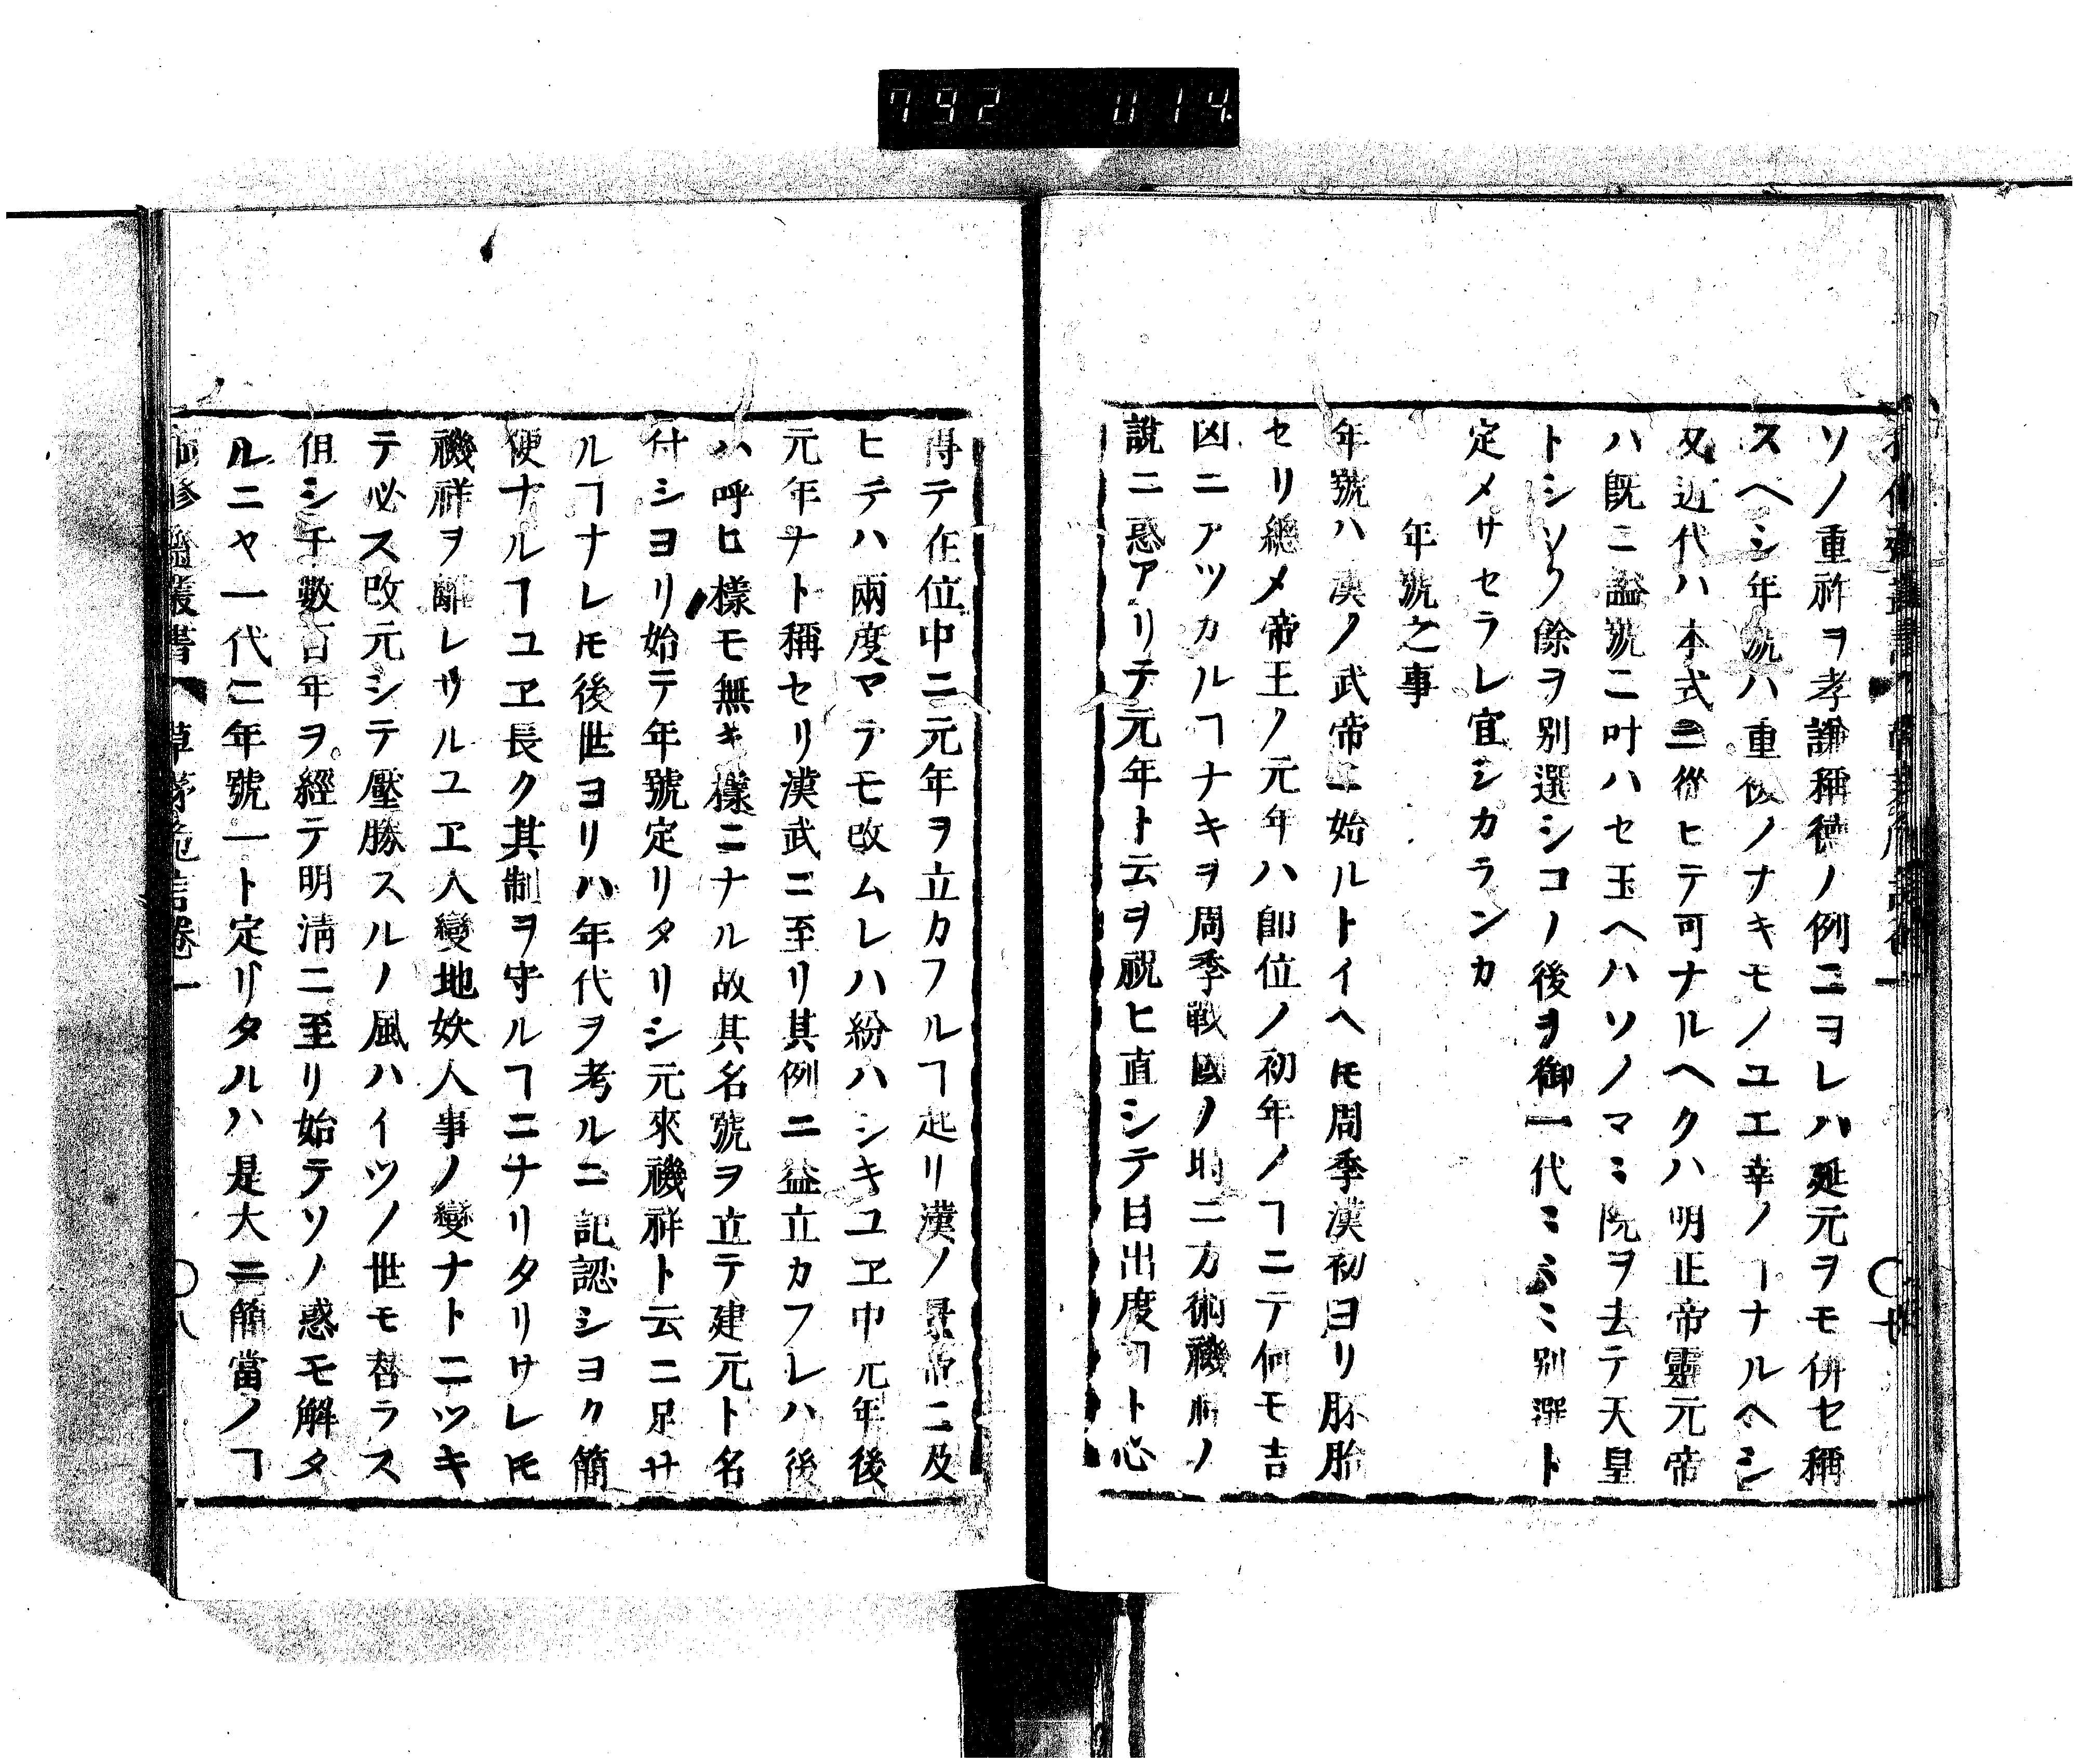 792 014
ソノ重祚ヲ孝謙稱徳ノ例ニヨレハ延元ヲモ併セ稱
スヘシ年號ハ重複ノナキモノユエ幸ノヿナルヘシ
又近代ハ本式ニ從ヒテ可ナルヘクハ明正帝靈元帝
ハ既ニ謚號ニ叶ハセ玉ヘハソノマヽ院ヲ去テ天皇
トシソノ餘ヲ別選シコノ後ヲ御一代ミミミ別選ト
定メサセラレ宜シカランカ
年號之事
年號ハ漢ノ武帝ニ始ルトイヘ𪜈周季漢初ヨリ胚胎
セリ總メ帝王ノ元年ハ即位ノ初年ノヿニテ何モ吉
凶ニアツカルヿナキヲ周季戰國ノ時ニ方術禨祥ノ
說ニ惑アリテ元年ト云ヲ祝ヒ直シテ目出度ヿト心
得テ在位中ニ元年ヲ立カフルヿ起リ漢ノ景帝ニ及
ヒテハ兩度マテモ改ムレハ紛ハシキユヱ中元年後
元年ナト稱セリ漢武ニ至リ其例ニ益立カフレハ後
ハ呼ヒ樣モ無キ樣ニナル故其名號ヲ立テ建元ト名
付シヨリ始テ年號定リタリシ元來禨祥ト云ニ足サ
ルヿナレ𪜈後世ヨリハ年代ヲ考ルニ記認シヨク簡
便ナルヿユヱ長ク其制ヲ守ルヿニナリタリサレ𪜈
禨祥ヲ離レサルユヱ人變地妖人事ノ變ナトニツキ
テ必ス改元シテ壓勝スルノ風ハイツノ世モ替ラス
但シ千數百年ヲ經テ明淸ニ至リ始テソノ惑モ解タ
ルニヤ一代ニ年號一ト定リタルハ是大ニ簡當ノヿ
草茅危言卷一
〇八